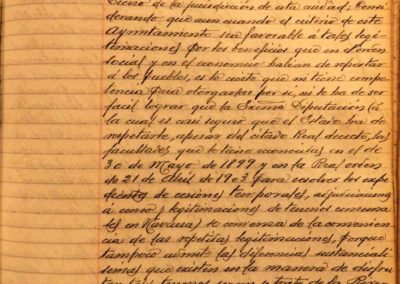 Cierro de la jurisdicción de esta ciudad; Consi-
derando que aun cuando el criterio de este
Ayuntamiento sea favorable á tales legi-
timaciones por los beneficios que en el orden
social y en el económico habían de reportar
á los pueblos, es lo cierto que ni tiene compe-
tencia para otorgarlas por sí, ni le ha de ser
facil lograr que la Excma Diputación (á
la cual es casi seguro que el Estado ha de
respetarle, apesar del citado Real decreto, las
facultades que le tiene reconocidas en el de
30 de Mayo de 1877 y en la Real orden
de 21 de Abril de 1903 para resolver los expe-
dientes de cesiones temporales, adjudicaciones
á censo y legitimaciones de terrenos comuna-
les en Navarra) se convenza de la convenien-
cia de las repetidas legitimaciones, porque
tampoco admite las diferencias sustancialí-
simas que existen en la manera de disfru-